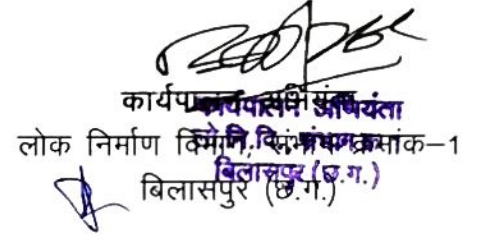 कार्यपालन अभियंता
लोक निर्माण विभाग, संभाग क्रमांक–1
बिलासपुर (छ.ग.)
कार्यपालन अभियंता
लो.नि.वि. संभाग क्र. 1
बिलासपुर (छ.ग.)